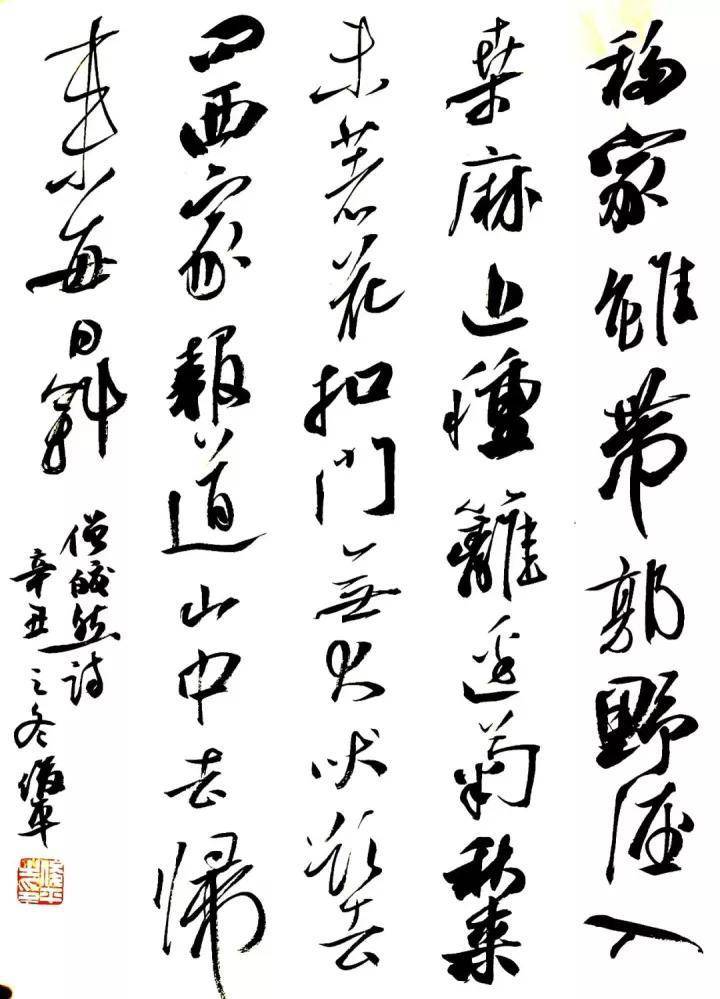 移家雖帶郭野徑入
桒麻近種籬邊菊秋來
未著花扣門無犬吠欲去
問西家報道山中去歸
來每日斜
僧皎然詩
辛丑之冬